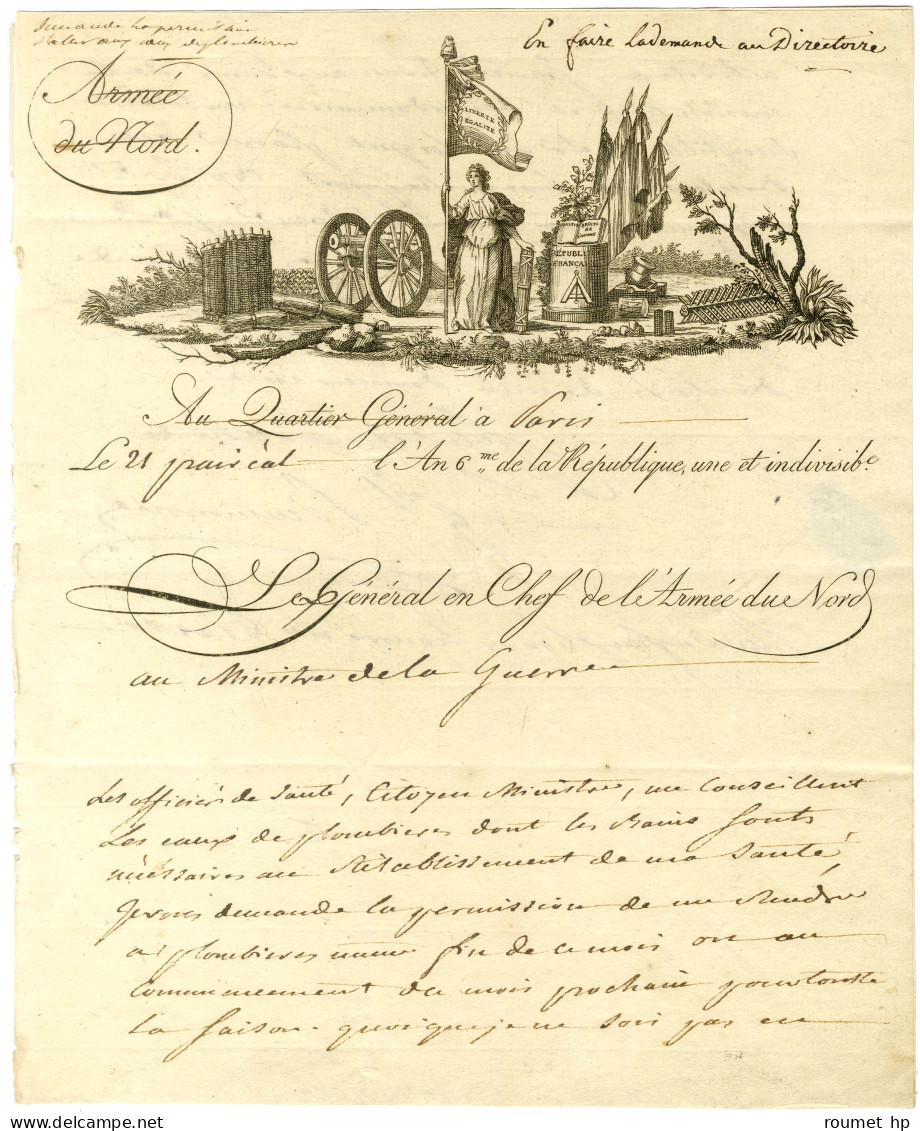 Demande la permission
d'aller aux eaux de plombieres
En faire la demande au Directoire
Armée
du Nord.
LIBERTÉ
EGALITÉ
DE
REPUBLI
FRANCAI
Au Quartier Général à Paris
Le 21 prairéal l'An 6.me de la République, une et indivisib.e
Le Général en Chef de l'Armée du Nord
au Ministre de la Guerre
Les officiers de Santé, Citoyen Ministre, me Conseillent
Les eaux de plombieres dont les Bains sonts
nécéssaires au Rétablissement de ma Santé,
Je vous demande la permission de me Rendre
a plombieres fin de ce mois ou au
Commencement du mois prochain pour toute
La Saison. quoique je ne sois pas en
roumet hp